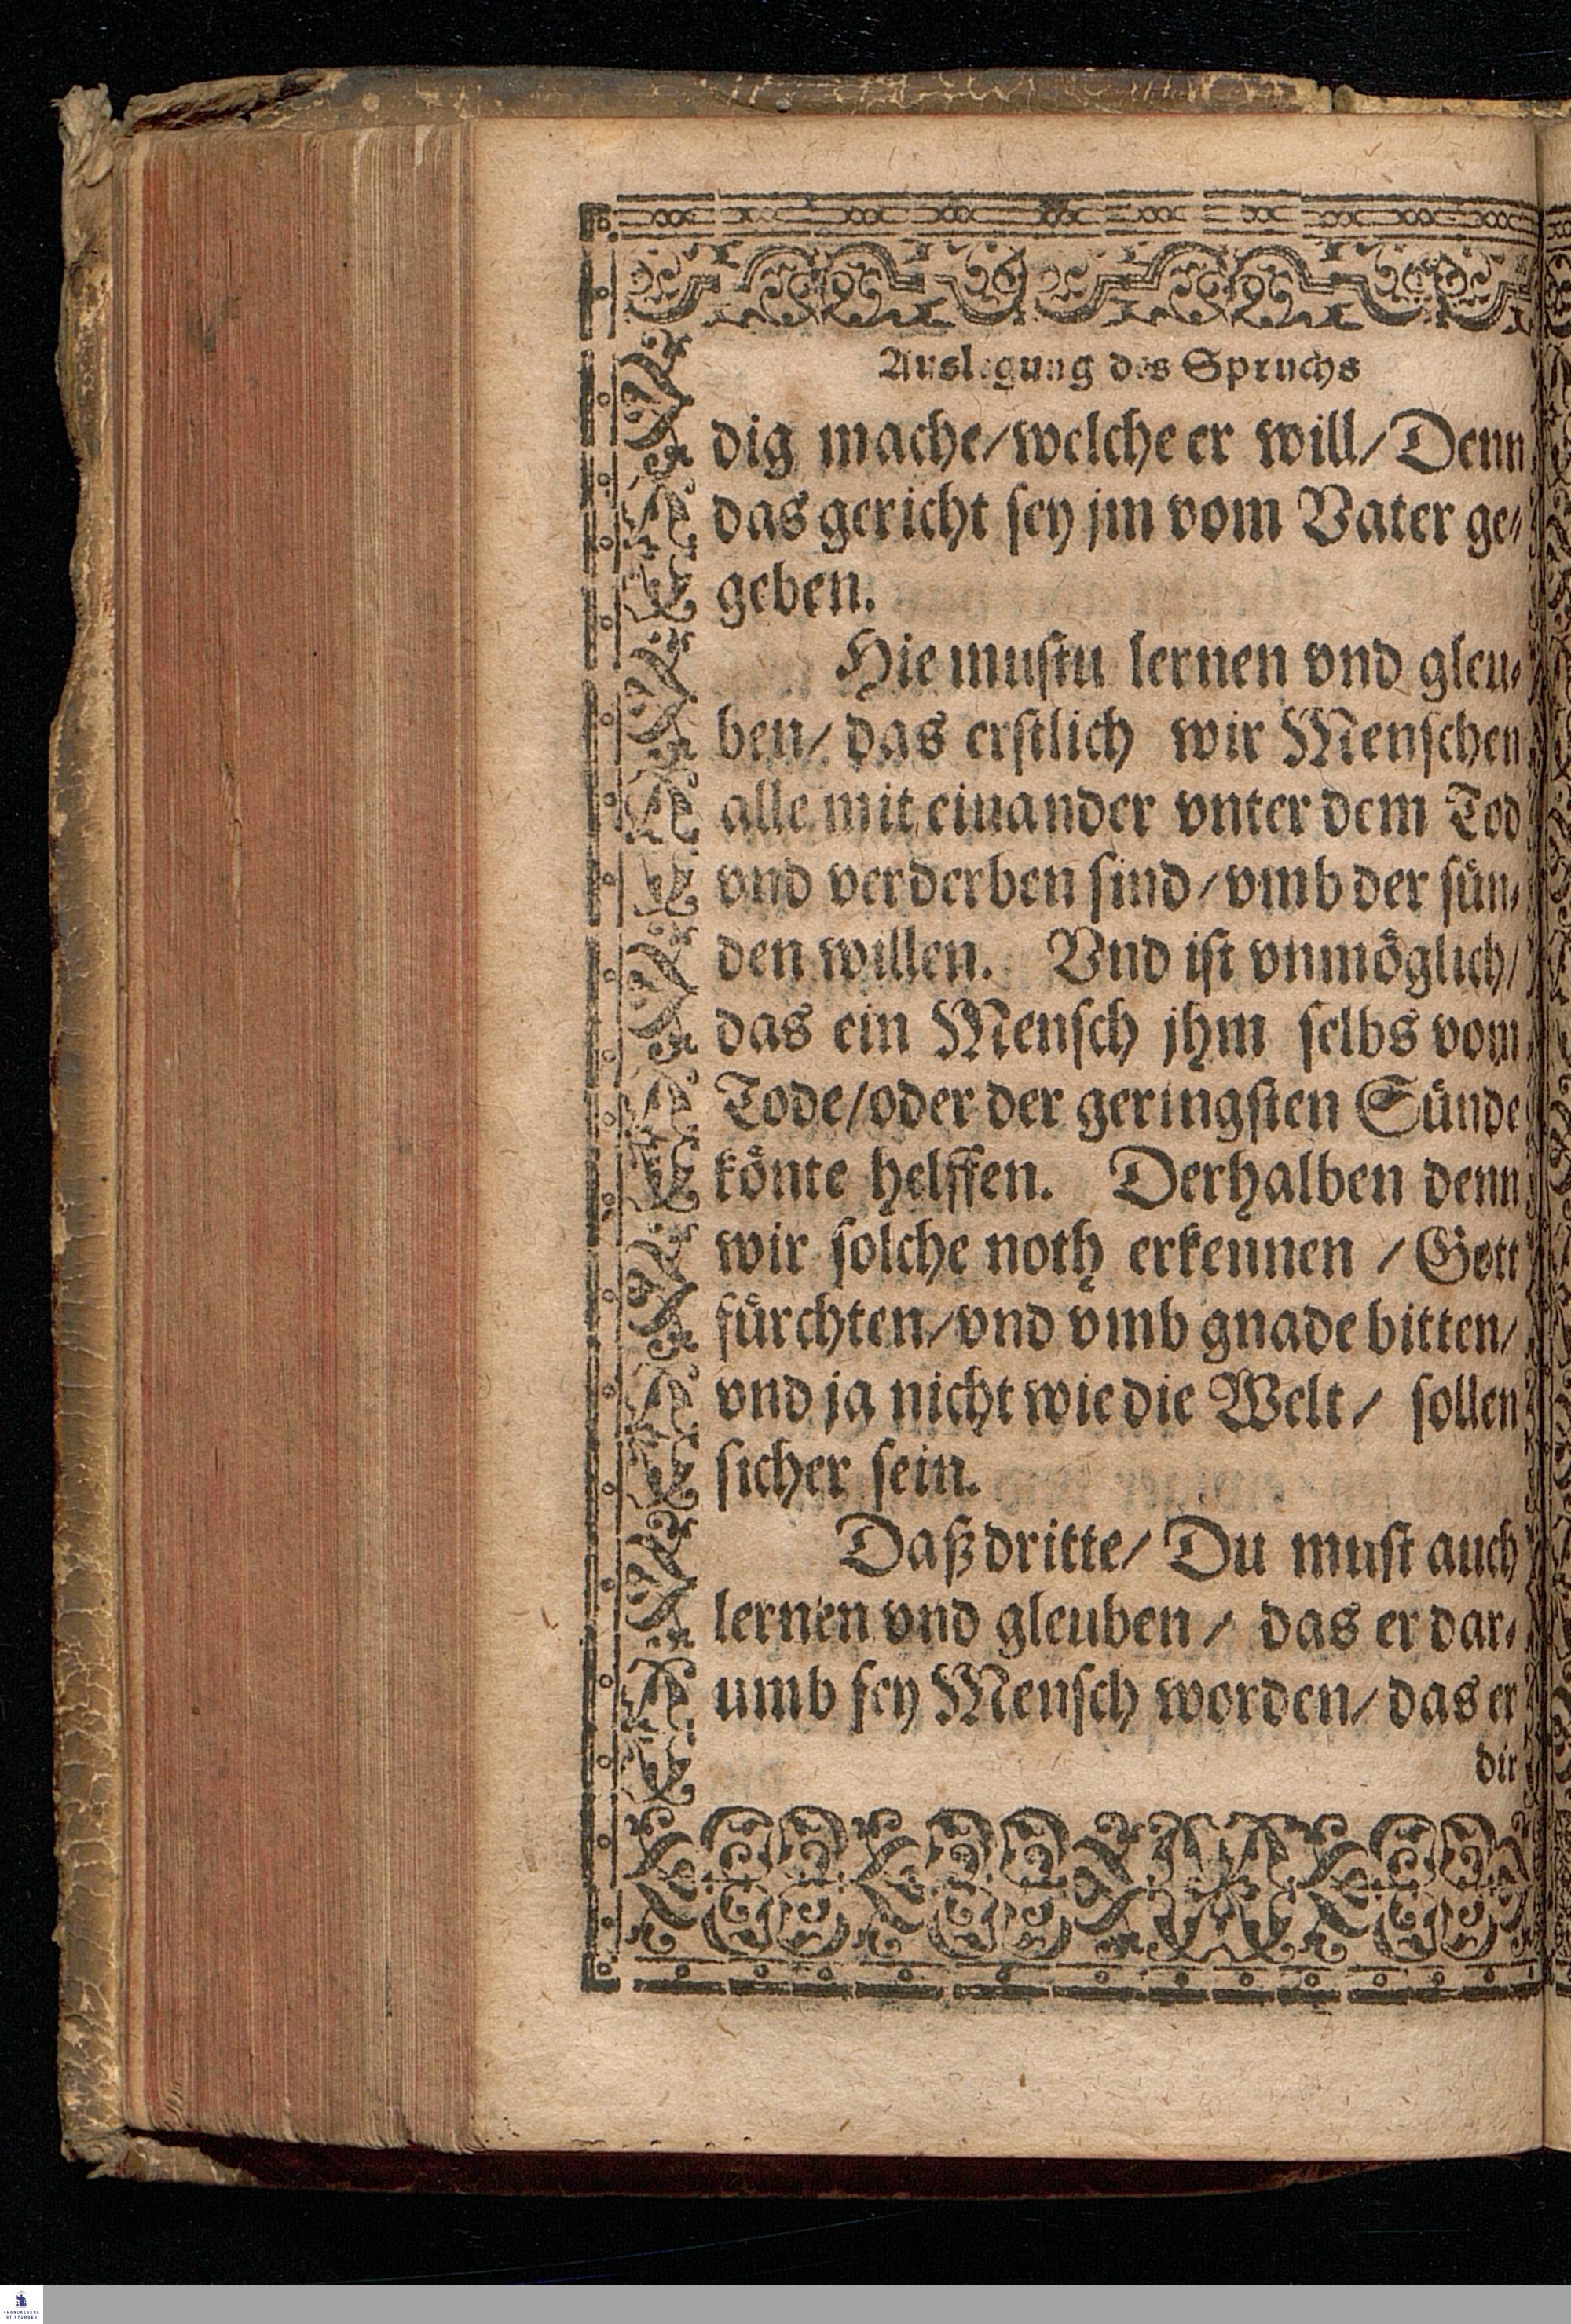 Auslegung des Spruchs
dig mache/welche er will/Denn
das gericht sey jm vom Vater ge⸗
geben.
Hie mustu lernen vnd gleu⸗
ben/ das erstlich wir Menschen
alle mit einander vnter dem Tod
vnd verderben sind/vmb der sün⸗
den willen. Vnd ist vnmöglich/
das ein Mensch jhm selbs vom
Tode/oder der geringsten Sünde
könte helffen. Derhalben denn
wir solche noth erkennen /Gott
fürchten/vnd vmb gnade bitten/
vnd ja nicht wie die Welt/ sollen
sicher sein.
Daß dritte/ Du must auch
lernen vnd gleuben/ das er dar⸗
umb sey Mensch worden/das er
dir
FRANCKESCHE
STIFTUNGEN